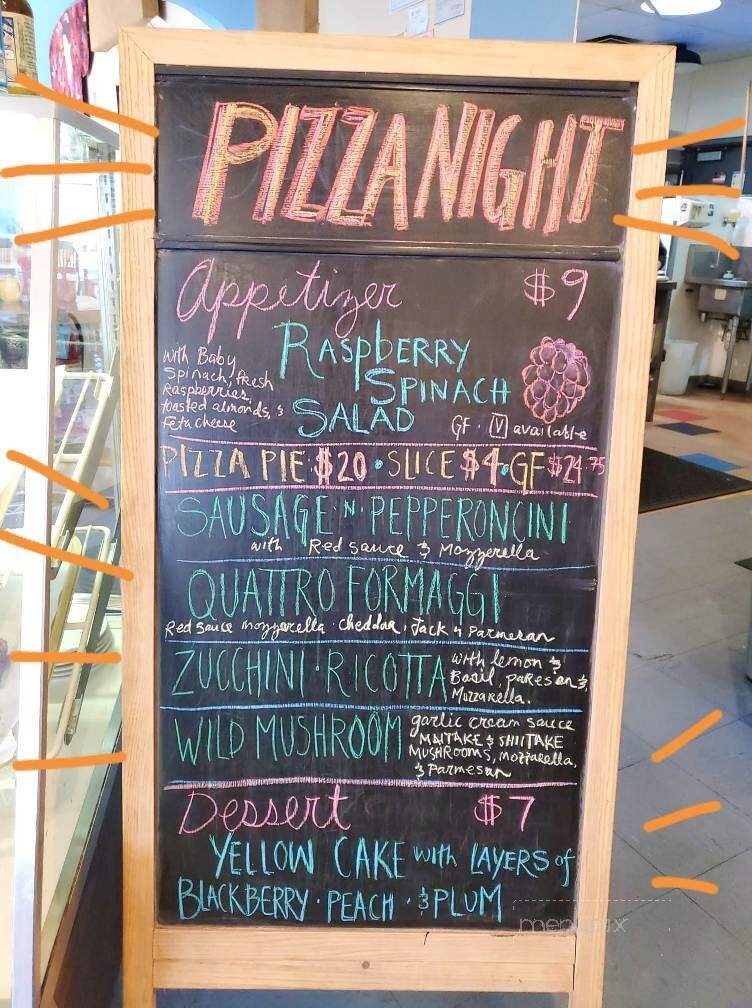 PIZZA NIGHT
Appetizer $9
RASPBERRY
SPINACH
SALAD
with Baby
Spinach, fresh
Raspberries,
toasted almonds, &
feta cheese
GF · V available
PIZZA PIE: $20 · SLICE $4 · GF $24.75
SAUSAGE 'N' PEPPERONCINI
with Red sauce & Mozzerella
QUATTRO FORMAGGI
Red sauce mozzerella · cheddar, Jack & Parmesan
ZUCCHINI · RICOTTA
with lemon &
Basil, paresan &
Mozzarella.
WILD MUSHROOM
garlic cream sauce
MAITAKE & SHIITAKE
MUSHROOMS, mozzarella,
& Parmesan
Dessert $7
YELLOW CAKE with LAYERS of
BLACKBERRY · PEACH · & PLUM
menupix